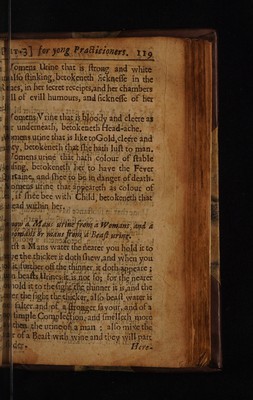 for yong Practisioners. 119
Womens Urine that is strong and white
also stinking, betokeneth sicknesse in the
in her secret receipts, and her chambers
ll of evill humours, and sicknesse of her
omens Vrine that is bloody and cleere as
er underneath, betokeneth Head-ache.
omens urine that is like to Gold, cleere and
betokeneth that she hath lust to man.
Womens urine that hath colour of stable
sing, betokeneth her to have the Fever
rtaine, and shee to be in danger of death.
omens urine that appeareth as colour of
, if shee bee with Child, betokeneth that
ead within her.
now a Mans urine from a Womans and a
mans from a Beast urine.
st a Mans water the nearer you hold it to
ye the thicker it doth shew, and when you
it further off the thinner it doth appeare;
beasts Urines it is not so; for the nearer
hold it to the sight the thinner it is, and the
er the sight the thicker, also beast water is
salter and of a stronger savour, and of a
simple Complection, and smelleth more
then the urine of a man: also mixe the
e of a Beast with wine and they will part
der. Here-